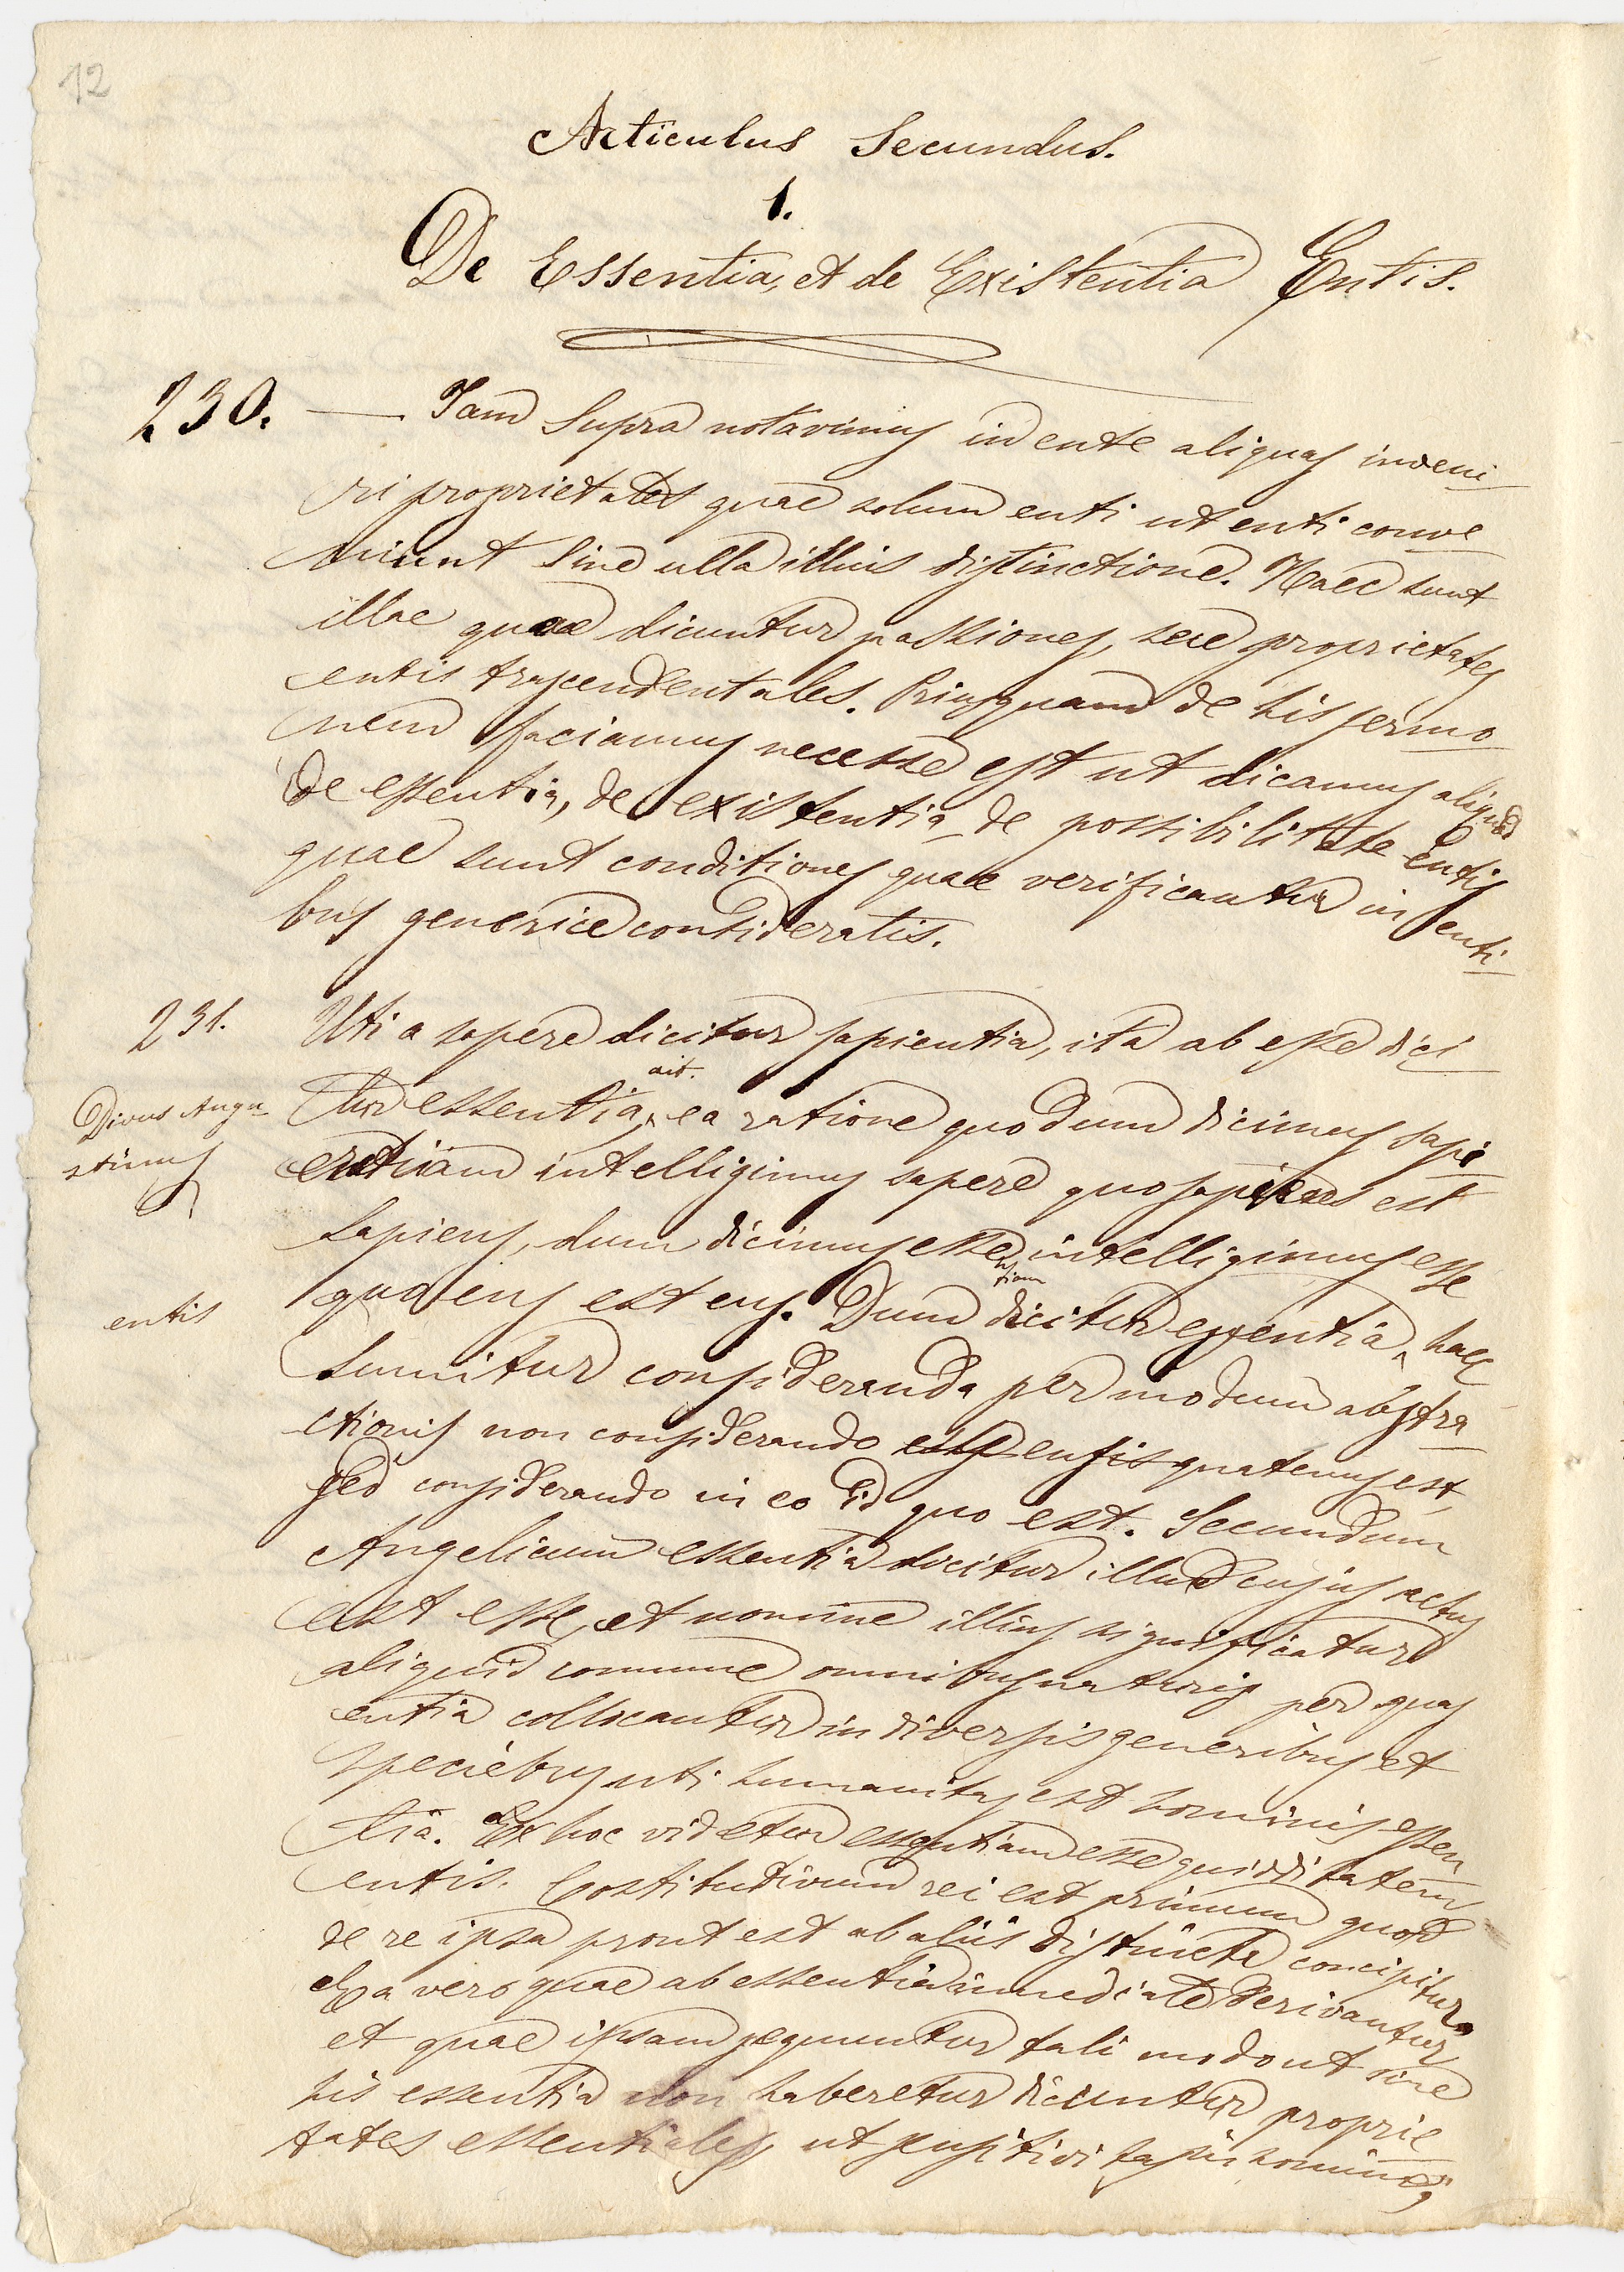 12
Articulus Secundus.
1.
De Essentia, et de Existentia Entis.
230. — Jam supra notavimus in ente aliquas inveni
ri proprietates quae solum enti ut enti conve
niunt sine ulla illius distinctione. Haec sunt
illae quae dicuntur passiones, seu proprietates
entis trascendentales. Priusquam de his sermo
nem faciamus necesse est ut dicamus aliquid
de essentia, de existentia, de possibilitate entis
quae sunt conditiones quae verificantur in enti
bus generice consideratis.
231. Uti a sapere dicitur sapientia, ita ab esse dici
ait.
Divus Augu
stinus
tur essentia, ea ratione quo dum dicimus sapi
entiam intelligimus sapere quo sapiens est
sapiens, dum dicimus esse intelligimus esse
tiam
entis
quo ens est ens. Dum dicitur essentia haec
sumitur consideranda per modum abstra
ctionis non considerando entis quatenus est,
sed considerando in eo id quo est. Secundum
Angelicum essentia dicitur illud cujus actus
est esse, et nomine illius significatur
aliquid comune omnibus naturis per quas
entia collocantur in diversis generibus et
speciebus uti humanitas est hominis essen
tia. Ex hoc videtur essentiam esse quidditatem
entis. Costitutivum rei est primum quod
de re ipsa prout est ab aliis distincta concipitur.
Ea vero quae ab essentia immediate derivantur
et quae ipsam sequuntur tali modo ut sine
his essentia non haberetur dicuntur proprie
tates essentiales, ut sensitivitas in homine;